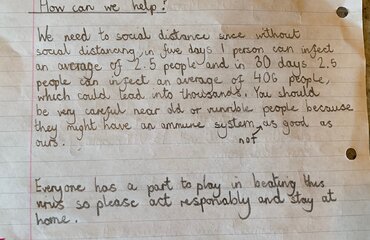 How can we help?
We need to social distance since without
social distancing in five days 1 person can infect
an average of 2.5 people and in 30 days 2.5
people can infect an average of 406 people,
which could lead into thousands. You should
be very careful near old or people because
they might have an ammune system as good as
not
ours.
Everyone has a part to play in beating this
virus so please act responsibly and stay at
home.